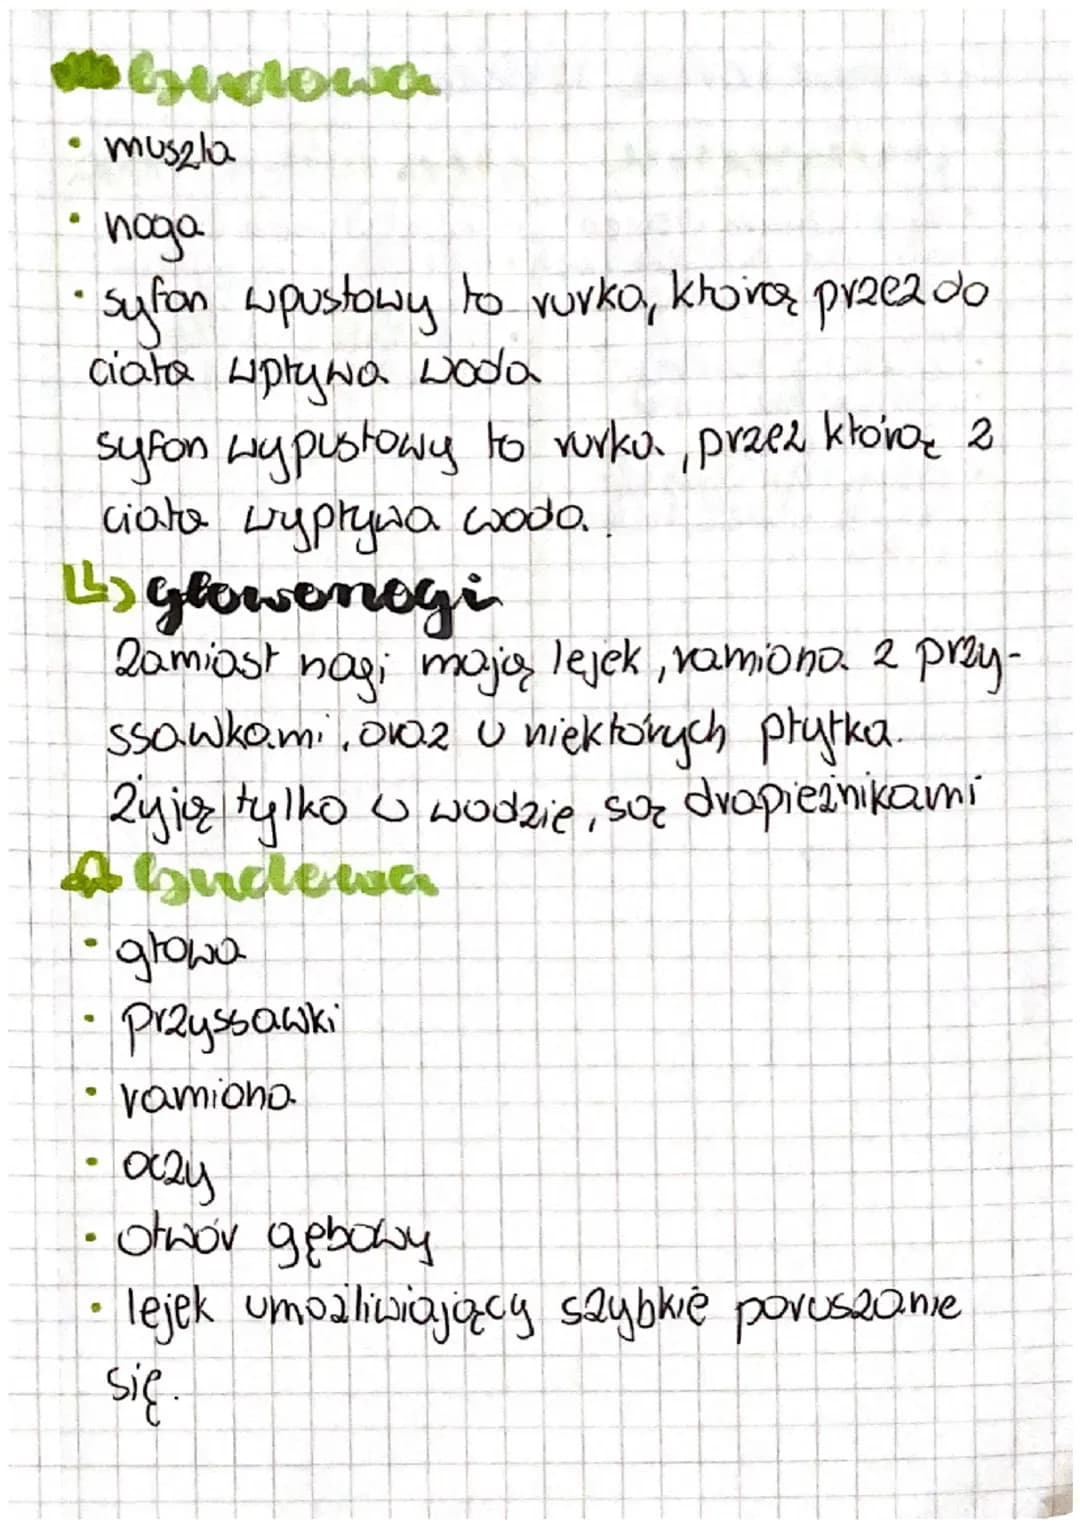 budowa
• muszla
• noga
• syfon wpustowy to rurka, którą przez do
ciała wpływa woda
syfon wypustowy to rurka, przez którą z
ciała wypływa woda.
głowonogi
Zamiast nogi mają lejek, ramiona z przy-
ssawkami, oraz u niektórych płytka.
Żyją tylko w wodzie, są drapieżnikami
budowa
• głowa
• przyssawki
• ramiona
• oczy
• otwór gębowy
• lejek umożliwiający szybkie poruszanie
się.